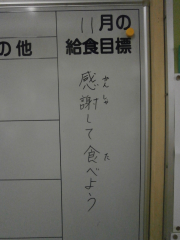 11月の
給食目標
の他
感謝して食べよう
かんしゃ
た